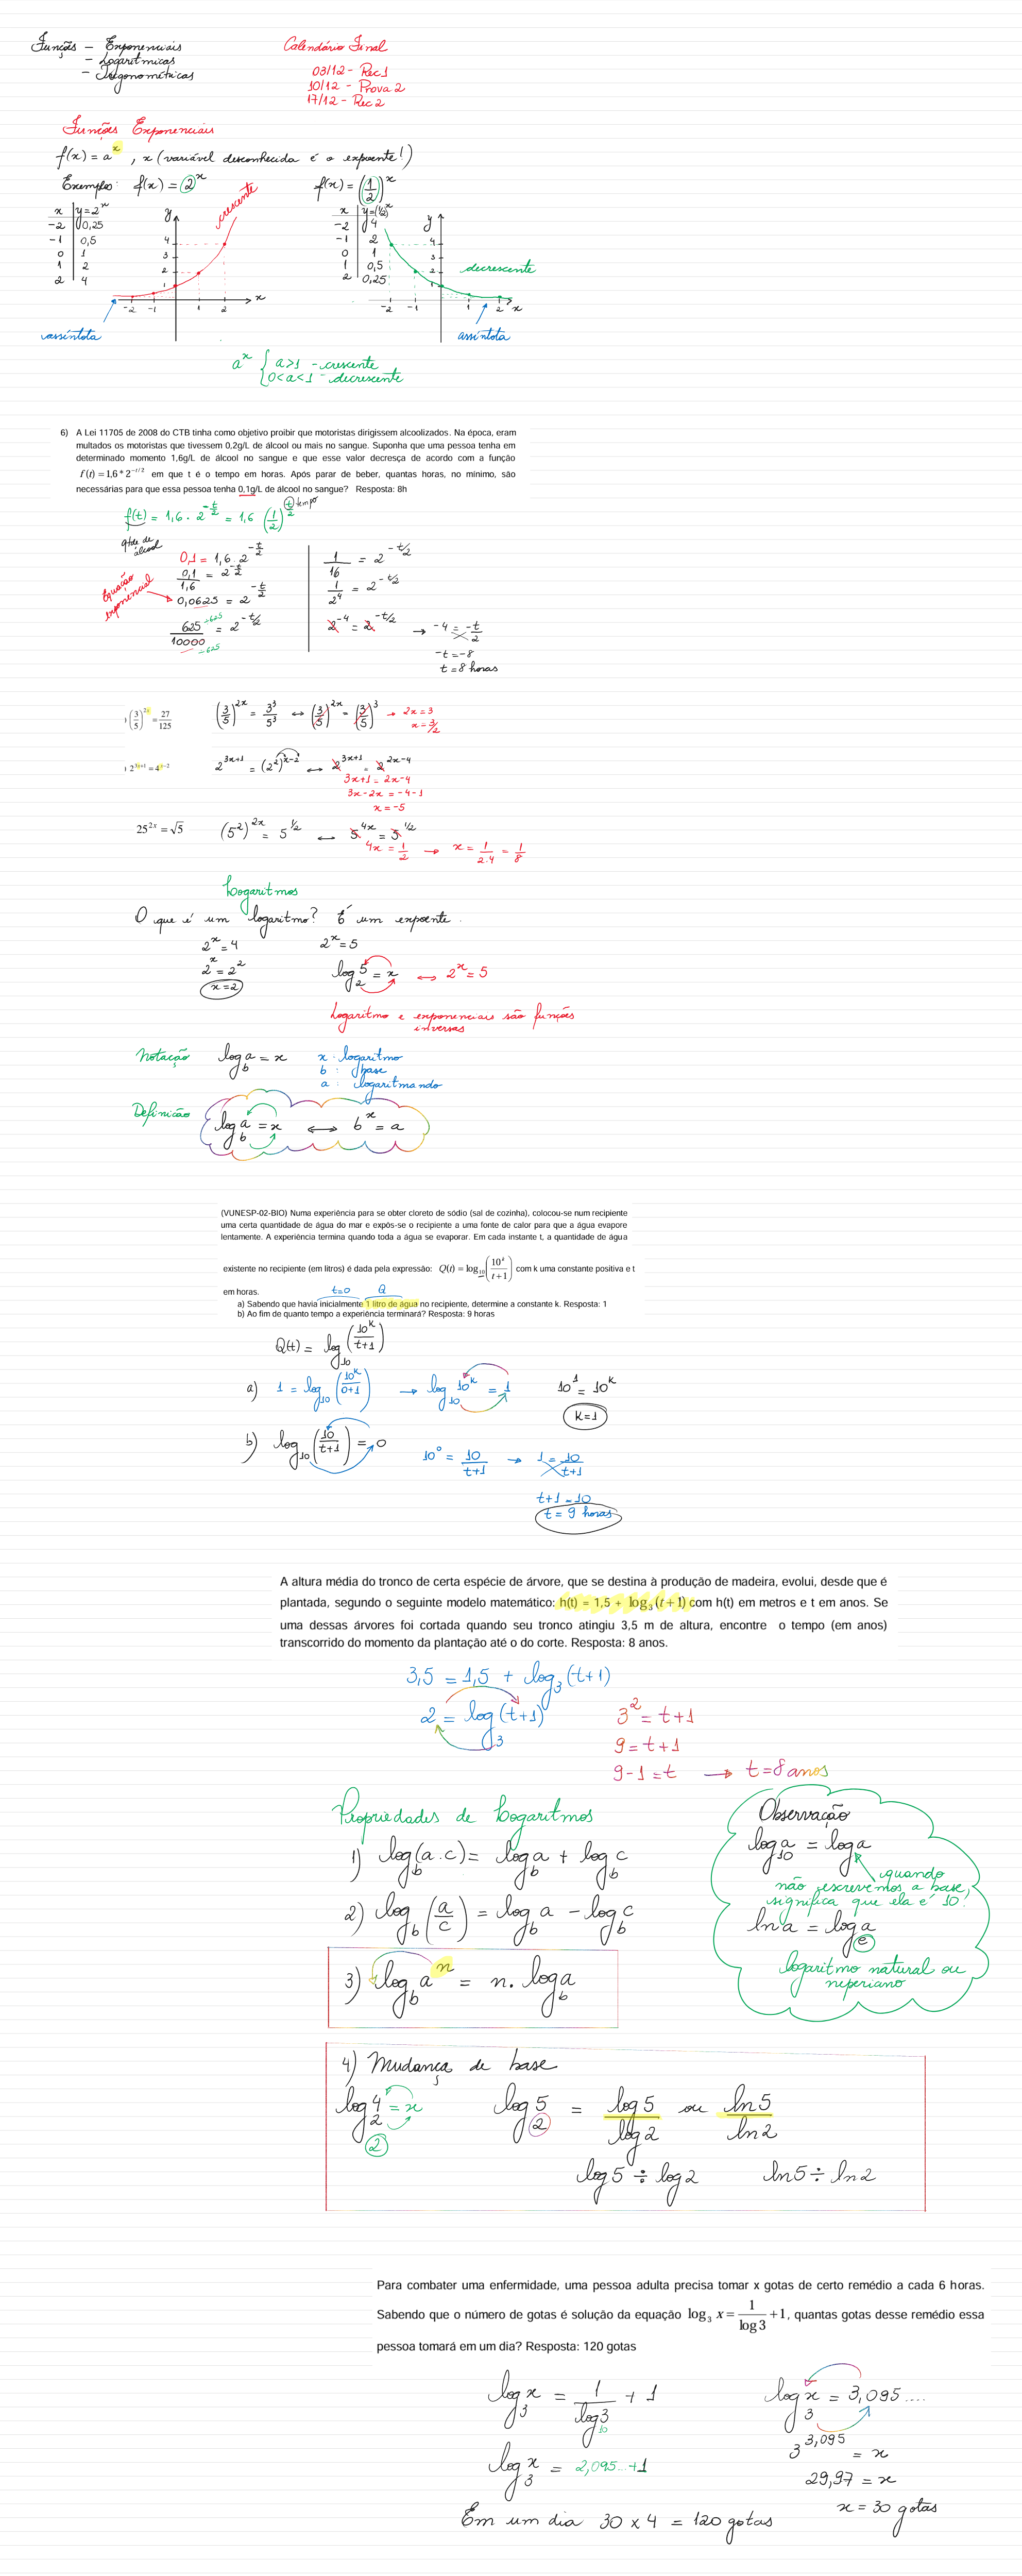 Funções - Exponenciais
- Logarítmicas
- Trigonométricas
Calendário Final
03/12 - Rec 1
10/12 - Prova 2
17/12 - Rec 2
Funções Exponenciais
f(x) = a^x, x (variável desconhecida é o expoente!)
Exemplo: f(x) = 2^x
x | y = 2^x
-2 | 0,25
-1 | 0,5
0 | 1
1 | 2
2 | 4
y
crescente
4
3
2
1
-2 -1 1 2 x
assíntota
f(x) = (1/2)^x
x | y = (1/2)^x
-2 | 4
-1 | 2
0 | 1
1 | 0,5
2 | 0,25
y
4
3
2
1
decrescente
-2 -1 1 2 x
assíntota
a^x { a>1 - crescente
0<a<1 - decrescente
6) A Lei 11705 de 2008 do CTB tinha como objetivo proibir que motoristas dirigissem alcoolizados. Na época, eram
multados os motoristas que tivessem 0,2g/L de álcool ou mais no sangue. Suponha que uma pessoa tenha em
determinado momento 1,6g/L de álcool no sangue e que esse valor decresça de acordo com a função
f(t) = 1,6 * 2^(-t/2) em que t é o tempo em horas. Após parar de beber, quantas horas, no mínimo, são
necessárias para que essa pessoa tenha 0,1g/L de álcool no sangue? Resposta: 8h
f(t) = 1,6 . 2^(-t/2) = 1,6 (1/2)^(t/2) tempo
qtde de
álcool
0,1 = 1,6 . 2^(-t/2)
0,1/1,6 = 2^(-t/2)
Equação exponencial
0,0625 = 2^(-t/2)
625/10000 ÷625 ÷625 = 2^(-t/2)
1/16 = 2^(-t/2)
1/2^4 = 2^(-t/2)
2^(-4) = 2^(-t/2) → -4 = -t/2
-t = -8
t = 8 horas
) (3/5)^(2x) = 27/125
(3/5)^(2x) = 3^3/5^3 ↔ (3/5)^(2x) = (3/5)^3 → 2x = 3
x = 3/2
) 2^(3x+1) = 4^(x-2)
2^(3x+1) = (2^2)^(x-2) ↔ 2^(3x+1) = 2^(2x-4)
3x+1 = 2x-4
3x-2x = -4-1
x = -5
25^(2x) = √5
(5^2)^(2x) = 5^(1/2) ↔ 5^(4x) = 5^(1/2)
4x = 1/2 → x = 1/2.4 = 1/8
Logaritmos
O que é um logaritmo? É um expoente.
2^x = 4
2^x = 2^2
x = 2
2^x = 5
log_2 5 = x ↔ 2^x = 5
Logaritmo e exponenciais são funções
inversas
Notação log_b a = x
x : logaritmo
b : base
a : logaritmando
Definicão log_b a = x ↔ b^x = a
(VUNESP-02-BIO) Numa experiência para se obter cloreto de sódio (sal de cozinha), colocou-se num recipiente
uma certa quantidade de água do mar e expôs-se o recipiente a uma fonte de calor para que a água evapore
lentamente. A experiência termina quando toda a água se evaporar. Em cada instante t, a quantidade de água
existente no recipiente (em litros) é dada pela expressão: Q(t) = log_10 (10^k/(t+1)) com k uma constante positiva e t
em horas.
t=0 Q
a) Sabendo que havia inicialmente 1 litro de água no recipiente, determine a constante k. Resposta: 1
b) Ao fim de quanto tempo a experiência terminará? Resposta: 9 horas
Q(t) = log_10 (10^k/(t+1))
a) 1 = log_10 (10^k/(0+1)) → log_10 10^k = 1
10^1 = 10^k
k=1
b) log_10 (10/(t+1)) = 0
10^0 = 10/(t+1) → 1 = 10/(t+1)
t+1 = 10
t = 9 horas
A altura média do tronco de certa espécie de árvore, que se destina à produção de madeira, evolui, desde que é
plantada, segundo o seguinte modelo matemático: h(t) = 1,5 + log_3 (t+1) com h(t) em metros e t em anos. Se
uma dessas árvores foi cortada quando seu tronco atingiu 3,5 m de altura, encontre o tempo (em anos)
transcorrido do momento da plantação até o do corte. Resposta: 8 anos.
3,5 = 1,5 + log_3 (t+1)
2 = log_3 (t+1)
3^2 = t+1
9 = t+1
9-1 = t → t = 8 anos
Propriedades de Logaritmos
1) log_b (a.c) = log_b a + log_b c
2) log_b (a/c) = log_b a - log_b c
3) log_b a^n = n. log_b a
Observação
log_10 a = log a
quando
não escrevemos a base,
significa que ela é 10!
ln a = log_e a
logaritmo natural ou
neperiano
4) Mudança de base
log_2 4 = x
2
log_2 5 = log 5/log 2 ou ln 5/ln 2
log 5 ÷ log 2 ln 5 ÷ ln 2
Para combater uma enfermidade, uma pessoa adulta precisa tomar x gotas de certo remédio a cada 6 horas.
Sabendo que o número de gotas é solução da equação log_3 x = 1/log 3 + 1, quantas gotas desse remédio essa
pessoa tomará em um dia? Resposta: 120 gotas
log_3 x = 1/log_10 3 + 1
log_3 x = 2,095... + 1
log_3 x = 3,095....
3^3,095 = x
29,97 = x
x = 30 gotas
Em um dia 30 x 4 = 120 gotas